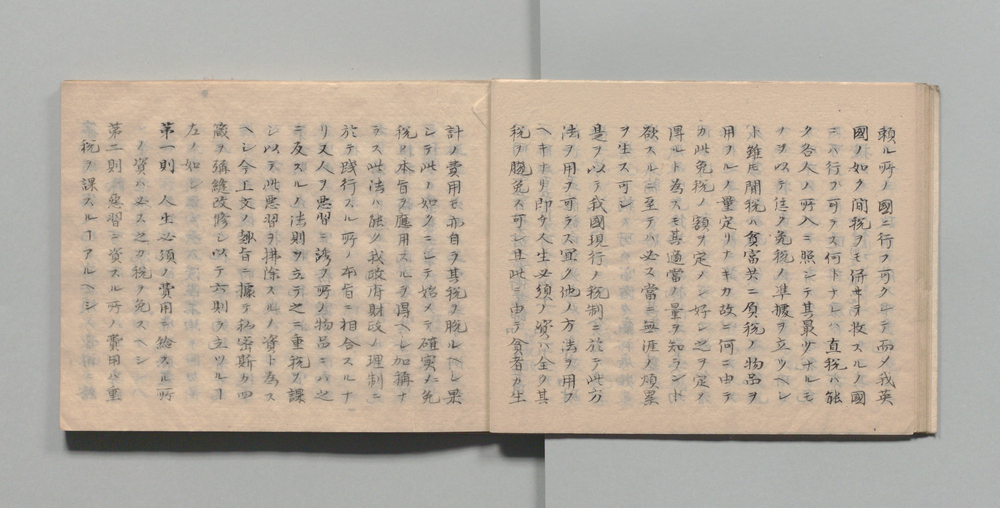 頼ル所ノ國ニ行フ可クシテ而メ我英
國ノ如ク間税ヲモ併セ收スルノ國
ニハ行フ可ラス何トナレハ直税ハ能
ク各人ノ所入ニ照シテ其最少ナルモ
ノヲ以テ往々免税ノ準據ヲ立ツヘシ
ト雖𪜈間税ハ貧富共ニ質税ノ物品ヲ
用フルノ量定リナキカ故ニ何ニ由テ
カ此免税ノ額ヲ定メン好シ之ヲ定メ
得ルト為スモ其適當ノ量ヲ知ラント
欲スルニ至テハ必ス當ニ無涯ノ煩累
ヲ生ス可シ
是ヲ以テ我國現行ノ税制ニ於テ此方
法ヲ用フ可ラス宜ク他ノ方法ヲ用フ
ヘキナリ即チ人生必須ノ資ハ全ク其
税ヲ脱免ス可シ且此ニ由テ貧者カ生
計ノ費用モ亦自ラ其税ヲ脱ルヘシ果
シテ此ノ如クニシテ始メテ確実ニ免
税ノ本旨ヲ應用スルヲ得ヘシ加稱ナ
ラス此法ハ能ク我政府財政ノ理制ニ
於テ践行スル所ノ本旨ニ相合スルナ
リ又人ヲ悪習ニ誘フ所ノ物品ニハ之
ニ反スルノ法則ヲ立テ之ニ重税ヲ課
シ以テ此悪習ヲ排除スルノ資ト為ス
ヘシ今上文ノ趣旨ニ據テ私密斯カ四
箴ヲ弥縫改修シ以テ六則ヲ立ツルヿ
左ノ如シ
第一則 人生必須ノ費用ニ給スル所
ノ資ハ必ス之カ税ヲ免スヘシ
第二則 悪習ニ資スル所ノ費用ハ重
税ヲ課スルヿアルヘシ